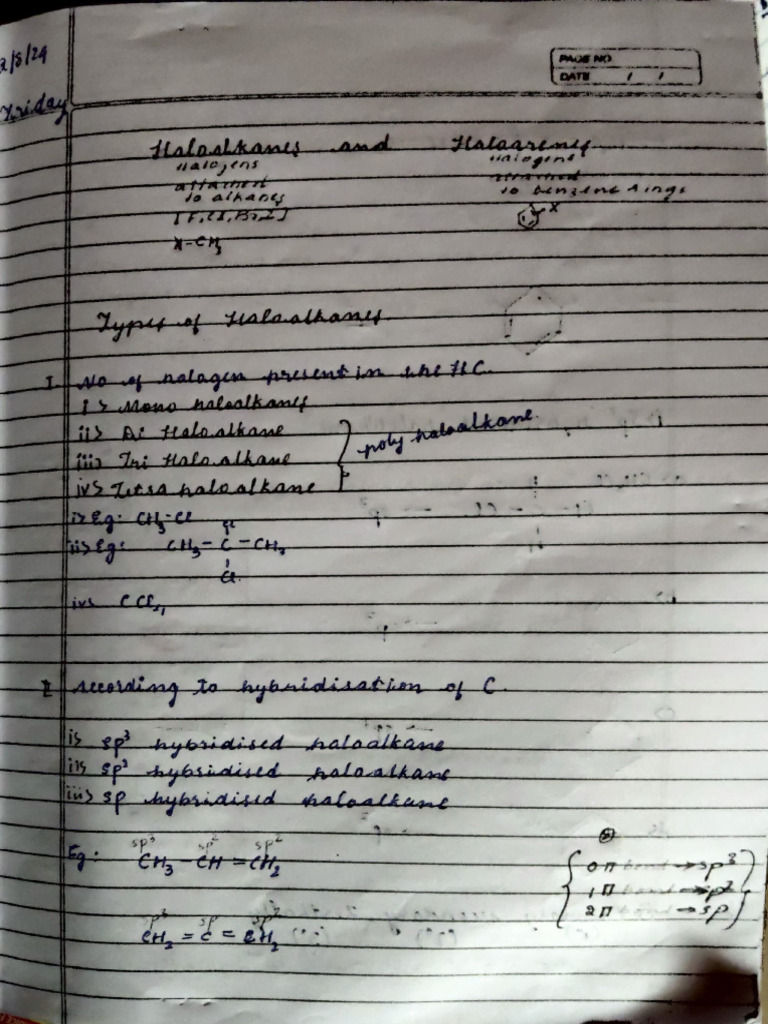 2/8/24
PAGE NO.
DATE / /
Friday
Haloalkanes and Haloarenes
Halogens attached to alkanes [F, Cl, Br, I]
X-CH3
Halogens attached to benzene rings
X
Types of Haloalkanes
I. No of halogen present in the HC.
i> Mono haloalkanes
ii> Di Haloalkane
iii> Tri Haloalkane
iv> Tetra haloalkane
poly haloalkane.
i> Eg: CH3-Cl
Cl
ii> Eg: CH3 - C - CH3
Cl
iv> CCl4
II According to hybridisation of C.
i> sp³ hybridised haloalkane
ii> sp² hybridised haloalkane
iii> sp hybridised haloalkane
sp³ sp² sp²
Eg: CH3 - CH = CH2
0π bond → sp³
1π bond → sp²
2π bond → sp
sp³ sp sp²
CH2 = C = CH2